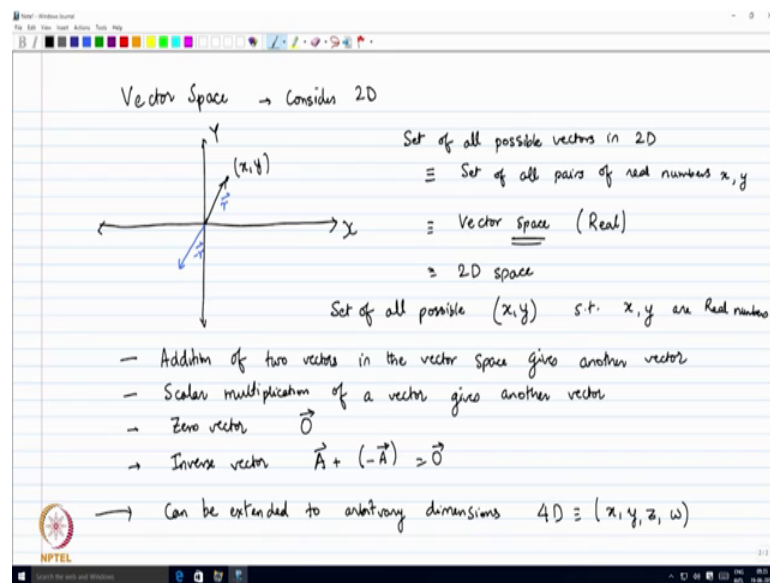 Note1 - Windows Journal
File Edit View Insert Actions Tools Help
Vector Space → Consider 2D
Y
(x,y)
r⃗
-r⃗
X
Set of all possible vectors in 2D
≡ Set of all pairs of real numbers x, y
≡ Vector Space (Real)
≡ 2D space
Set of all possible (x,y) s.t. x, y are Real numbers
— Addition of two vectors in the vector space gives another vector
— Scalar multiplication of a vector gives another vector
→ Zero vector 0⃗
→ Inverse vector A⃗ + (-A⃗) = 0⃗
→ Can be extended to arbitrary dimensions 4D ≡ (x, y, z, w)
NPTEL
2/2
Search the web and Windows
ENG